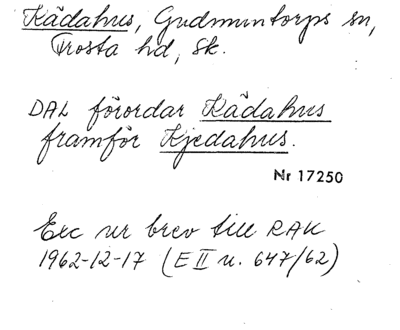 Kädahus, Gudmuntorps sn,
Frosta hd, Sk.
DAL förordar Kädahus
framför Kjedahus.
Nr 17250
Exc ur brev till RAK
1962-12-17 (E II u. 647/62)